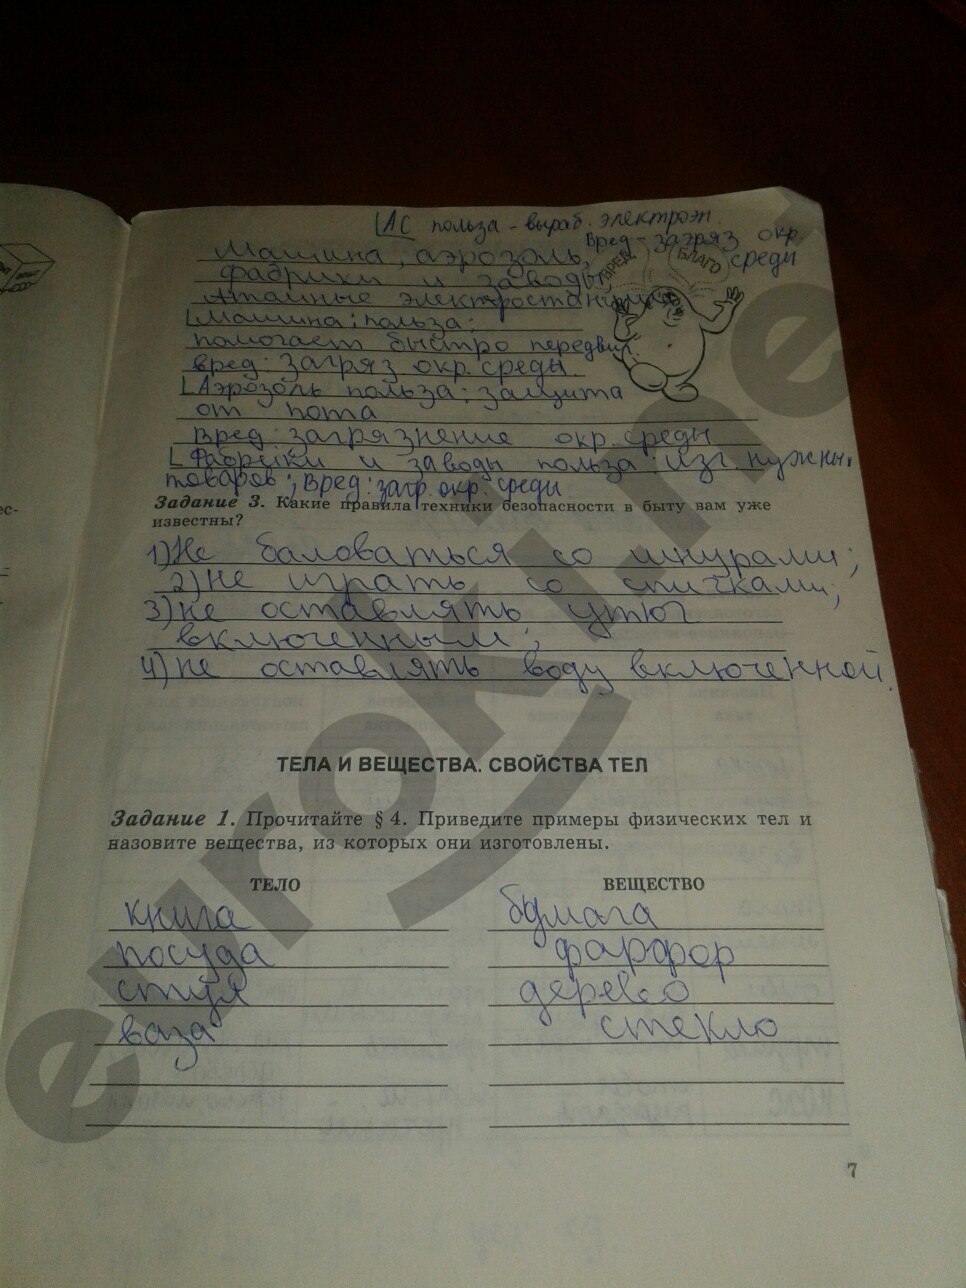 АС польза - выраб. электроэн.
Вред - загряз окр.
среди
Машина, аэрозоль,
фабрики и заводы,
Атомные электростанции
ВРЕД
БЛАГО
Машина: польза:
помогает быстро передвиг.
вред: загряз окр. среды.
Аэрозоль польза: защита
от пота
Вред: загрязнение окр. среды
Фабрики и заводы польза: изг. нужных
товаров; Вред: загр. окр. среды
Задание 3. Какие правила техники безопасности в быту вам уже
известны?
1) Не баловаться со шнурами;
2) не играть со спичками;
3) не оставлять утюг
включенным;
4) не оставлять воду включенной.
ТЕЛА И ВЕЩЕСТВА. СВОЙСТВА ТЕЛ
Задание 1. Прочитайте § 4. Приведите примеры физических тел и
назовите вещества, из которых они изготовлены.
ТЕЛО ВЕЩЕСТВО
книга бумага
посуда фарфор
стул дерево
ваза стекло
7
euroki.net